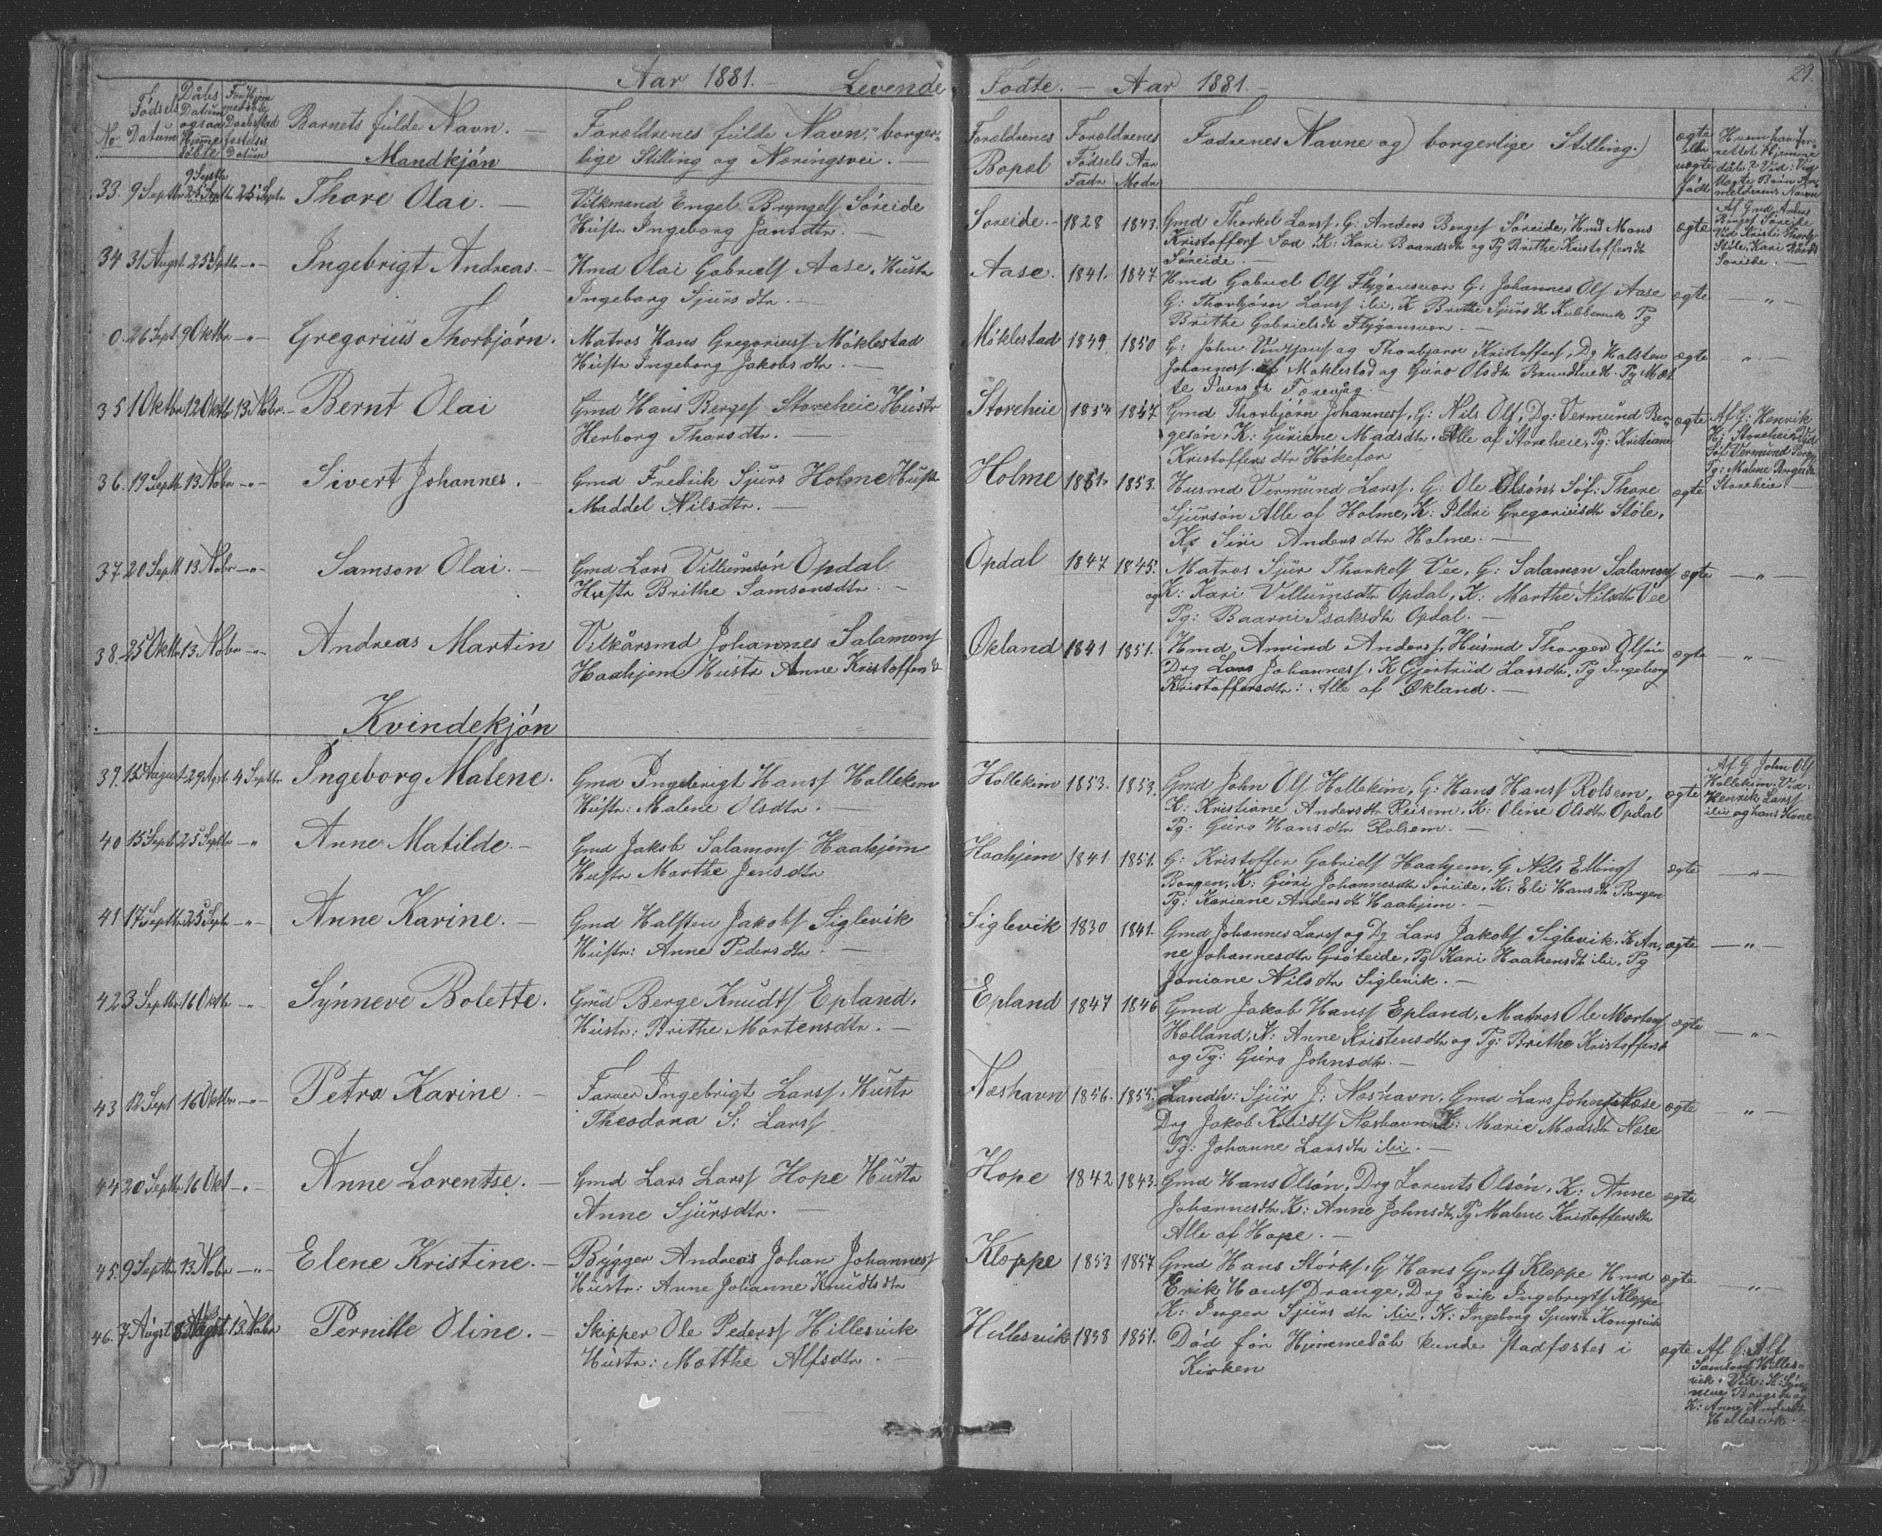 Aar 1881. Levende Födte. — Aar 1881. — 29.
No
Födsels Datum
Daabs Datum ogsaa Hjemme döbte
Barnets fulde Navn. —
Mandkjön
Forældrenes fulde Navn, borger-
lige Stilling og Næringsvei. —
Forældrenes Bopæl
Forældrenes Födsels Aar
Fadr Modr
Fadrenes Navne og borgerlige Stilling.
ægte eller uægte födt
33. 9 Septbr 25 Septb 25 Septbr
9 Septbr
Thore Olai. —
Vilkmand Engel Bryngelf Söreide
Hustr Ingeborg Jansdtr. —
Soreide. - 1828 1843.
Gmd Thorkel Larsf. G. Anders Bergef Söreide, Kmd Mons
Kristoffersf Sæd K: Kari Baardsdtr og Pg Brithe Kristoffersdtr
Söreide. —
ægte
Af Gmd Anders
Bergef Söreide
34 31 Augst 25 Septbr —"—
Ingebrigt Andreas. —
Hmd Olai Gabrielf Aase, Hustr
Ingeborg Sjursdtr. —
Aase. 1841. 1847
Hmd Gabriel Olf Flygansvær G: Johannes Olf Aase
G: Thorbjörn Larsf ibi, K Brithe Sjursdtr Kubbervik Pg
Brithe Gabrielsdtr Flygansvær. —
ægte —"—
0. 26 Sept 9 Oktbr —"—
Gregorius Thorbjörn.
Matros Hans Gregoriusf Möklestad
Hustr Ingeborg Jakobsdtr. —
Möklestad 1849. 1850
G: John Vintjansf og Thorbjörn Kristoffersf, Dg Halsten
Johannesf. af Möklestad og Guro Olsdtr Brundtvedt. Pg Mar-
te Iversdtr Forevåg. —
ægte —"—
35 1 Oktbr 12 Oktbr 13 Nobr. —
Bernt Olai
Gmd Hans Bergef Storeheie Hustr
Herborg Tharsdtr. —
Storeheie 1854 1847
Gmd Thorbjörn Johannesf, G: Nils Olf, Dg: Vermund Ber-
gesön, K: Guriane Madsdtr. Alle af Storeheie, Pg: Kristiane
Kristoffersdtr Hökefær
ægte
Af G: Henrik
H: Storeheie Vid
Pg: Malene Bergsdtr
Storeheie. —
36. 19 Septbr 13 Nobr —"—
Sivert Johannes. —
Gmd Fredrik Sjurs Holme Hustr
Maddel Nilsdtr. —
Holme 1851. 1853.
Husmd Vermund Larsf, G: Ole Olsön, Söf: Thore
Sjursön Alle af Holme, K: Ildri Gregoriusdtr Stöle,
K: Siri Andersdtr Holme. —
ægte
37 20 Septb 13 Nobr —"—
Samson Olai. —
Gmd Lars Villumsön Opdal
Hustr Brithe Samsonsdtr. —
Opdal 1847 1845.
Matros Sjur Thorkelf Vee, G: Salamon Salamonf
og K: Kari Villumsdtr Opdal, K: Marthe Nilsdtr Vee
Pg: Baarni Isaksdtr Opdal. —
ægte —"—
38. 25 Oktbr 13 Nobr —"—
Andreas Martin
Vilkårsmd Johannes Salamonf
Haahjem Hustr Anne Kristoffersdtr
Økland 1841 1851.
Hmd Amund Andersf, Husmd Thorger Olsön
Drg Lars Johannesf. K Gjertrud Larsdtr, Pg Ingeborg
Kristoffersdtr: Alle af Økland. —
ægte —"—
Kvindekjön
39. 15 August 29 Agst 4 Septbr
Ingeborg Malene.
Gmd Ingebrigt Hansf Hollekim
Hustr: Malene Olsdtr. —
Hollekim 1853. 1853.
Gmd John Olf Hollekim, G: Hans Hansf Rolsem,
K: Kristiane Andersdtr Reisem, K: Oline Olsdtr Opdal
Pg: Guro Hansdtr Rolsem. —
ægte
Af G John Olf
Hollekim, Vid:
Henrik Larsf
ibi og hans Kone
40 15 Sept 25 Septbr —"
Anne Matilde. —
Gmd Jakob Salamonf Haahjem
Hustr Marthe Jensdtr
Haahjem 1841. 1851.
G: Kristoffer Gabrielf Haahjem, G Nils Ellingf
Bongen, K: Guri Johannesdtr Söreide, K: Eli Hansdtr Bongen
Pg: Kariane Andersdtr Haahjem. —
ægte —"—
41 17 Septbr 25 Sept —"—
Anne Karine. —
Gmd Halsten Jakobf Siglevik
Hustr: Anne Pedersdtr. —
Siglevik 1830 1841.
Gmd Johannes Larsf og Dg Lars Jakobf Siglevik. K An-
ne Johannesdtr Gröteide, Pg Kari Haakensdtr ibi, Pg
Joniane Nilsdtr Siglevik. —
ægte —"—
42 3 Septbr 16 Oktbr —"
Synneve Bolette.
Gmd Berge Knudtf Epland.
Hustr: Brithe Mortensdtr. —
Epland 1847 1846
Gmd Jakob Hansf Epland, Matros Ole Mortenf
Holland, K: Anne Kristensdtr og Pg: Brithe Kristoffersdtr
og Pg: Guro Johnsdtr. —
ægte —"—
43 12 Sept 16 Oktbr —"—
Petra Karine. —
Farver Ingebrigt Larsf, Hustr
Theodora S: Larsf
Næshavn 1856. 1855.
Landh: Sjur J: Næshavn, Gmd Lars Johnsf Næse
Drg Jakob Knudtf Næshavn K: Marie Madsdtr Næse
Pg: Johanne Larsdtr ibi. —
ægte —"—
44 20 Septbr 16 Okt —"—
Anne Lorentse. —
Gmd Lars Larsf Hope Hustr
Anne Sjursdtr. —
Hope 1842 1843.
Gmd Hans Olsön, Drg Lorents Olsön, K: Anne
Johannesdtr K: Anne Johnsdtr, Pg Malene Kristoffersdtr
Alle af Hope. —
ægte
45. 9 Septbr 13 Nobr —"—
Elene Kristine. —
Brygger Andreas Johan Johannesf
Hustr: Anne Johanne Knudtsdtr
Kloppe 1853 1857
Gmd Hans Störkf, G Hans Gjertf Kloppe Hmd
Erik Hansf Drange, Drg Erik Ingebrigtf Kloppe
K: Inger Sjursdtr ibi, K: Ingeborg Sjursdtr Kongsvik
ægte —"—
46. 7 Augst 8 Augst 13 Nobr
Pernille Oline. —
Skipper Ole Pedersf Hillesvik
Hustr: Matthe Alfsdtr. —
Hillesvik 1838 1851.
Död för Hjemmedåb kunde stadfæstes i
Kirken
ægte
Af G: Alf
Samsonf Hilles-
vik. Vid: K: Syn-
neve Bargsdtr og
K: Anne Andersdtr
Hillesvik. —